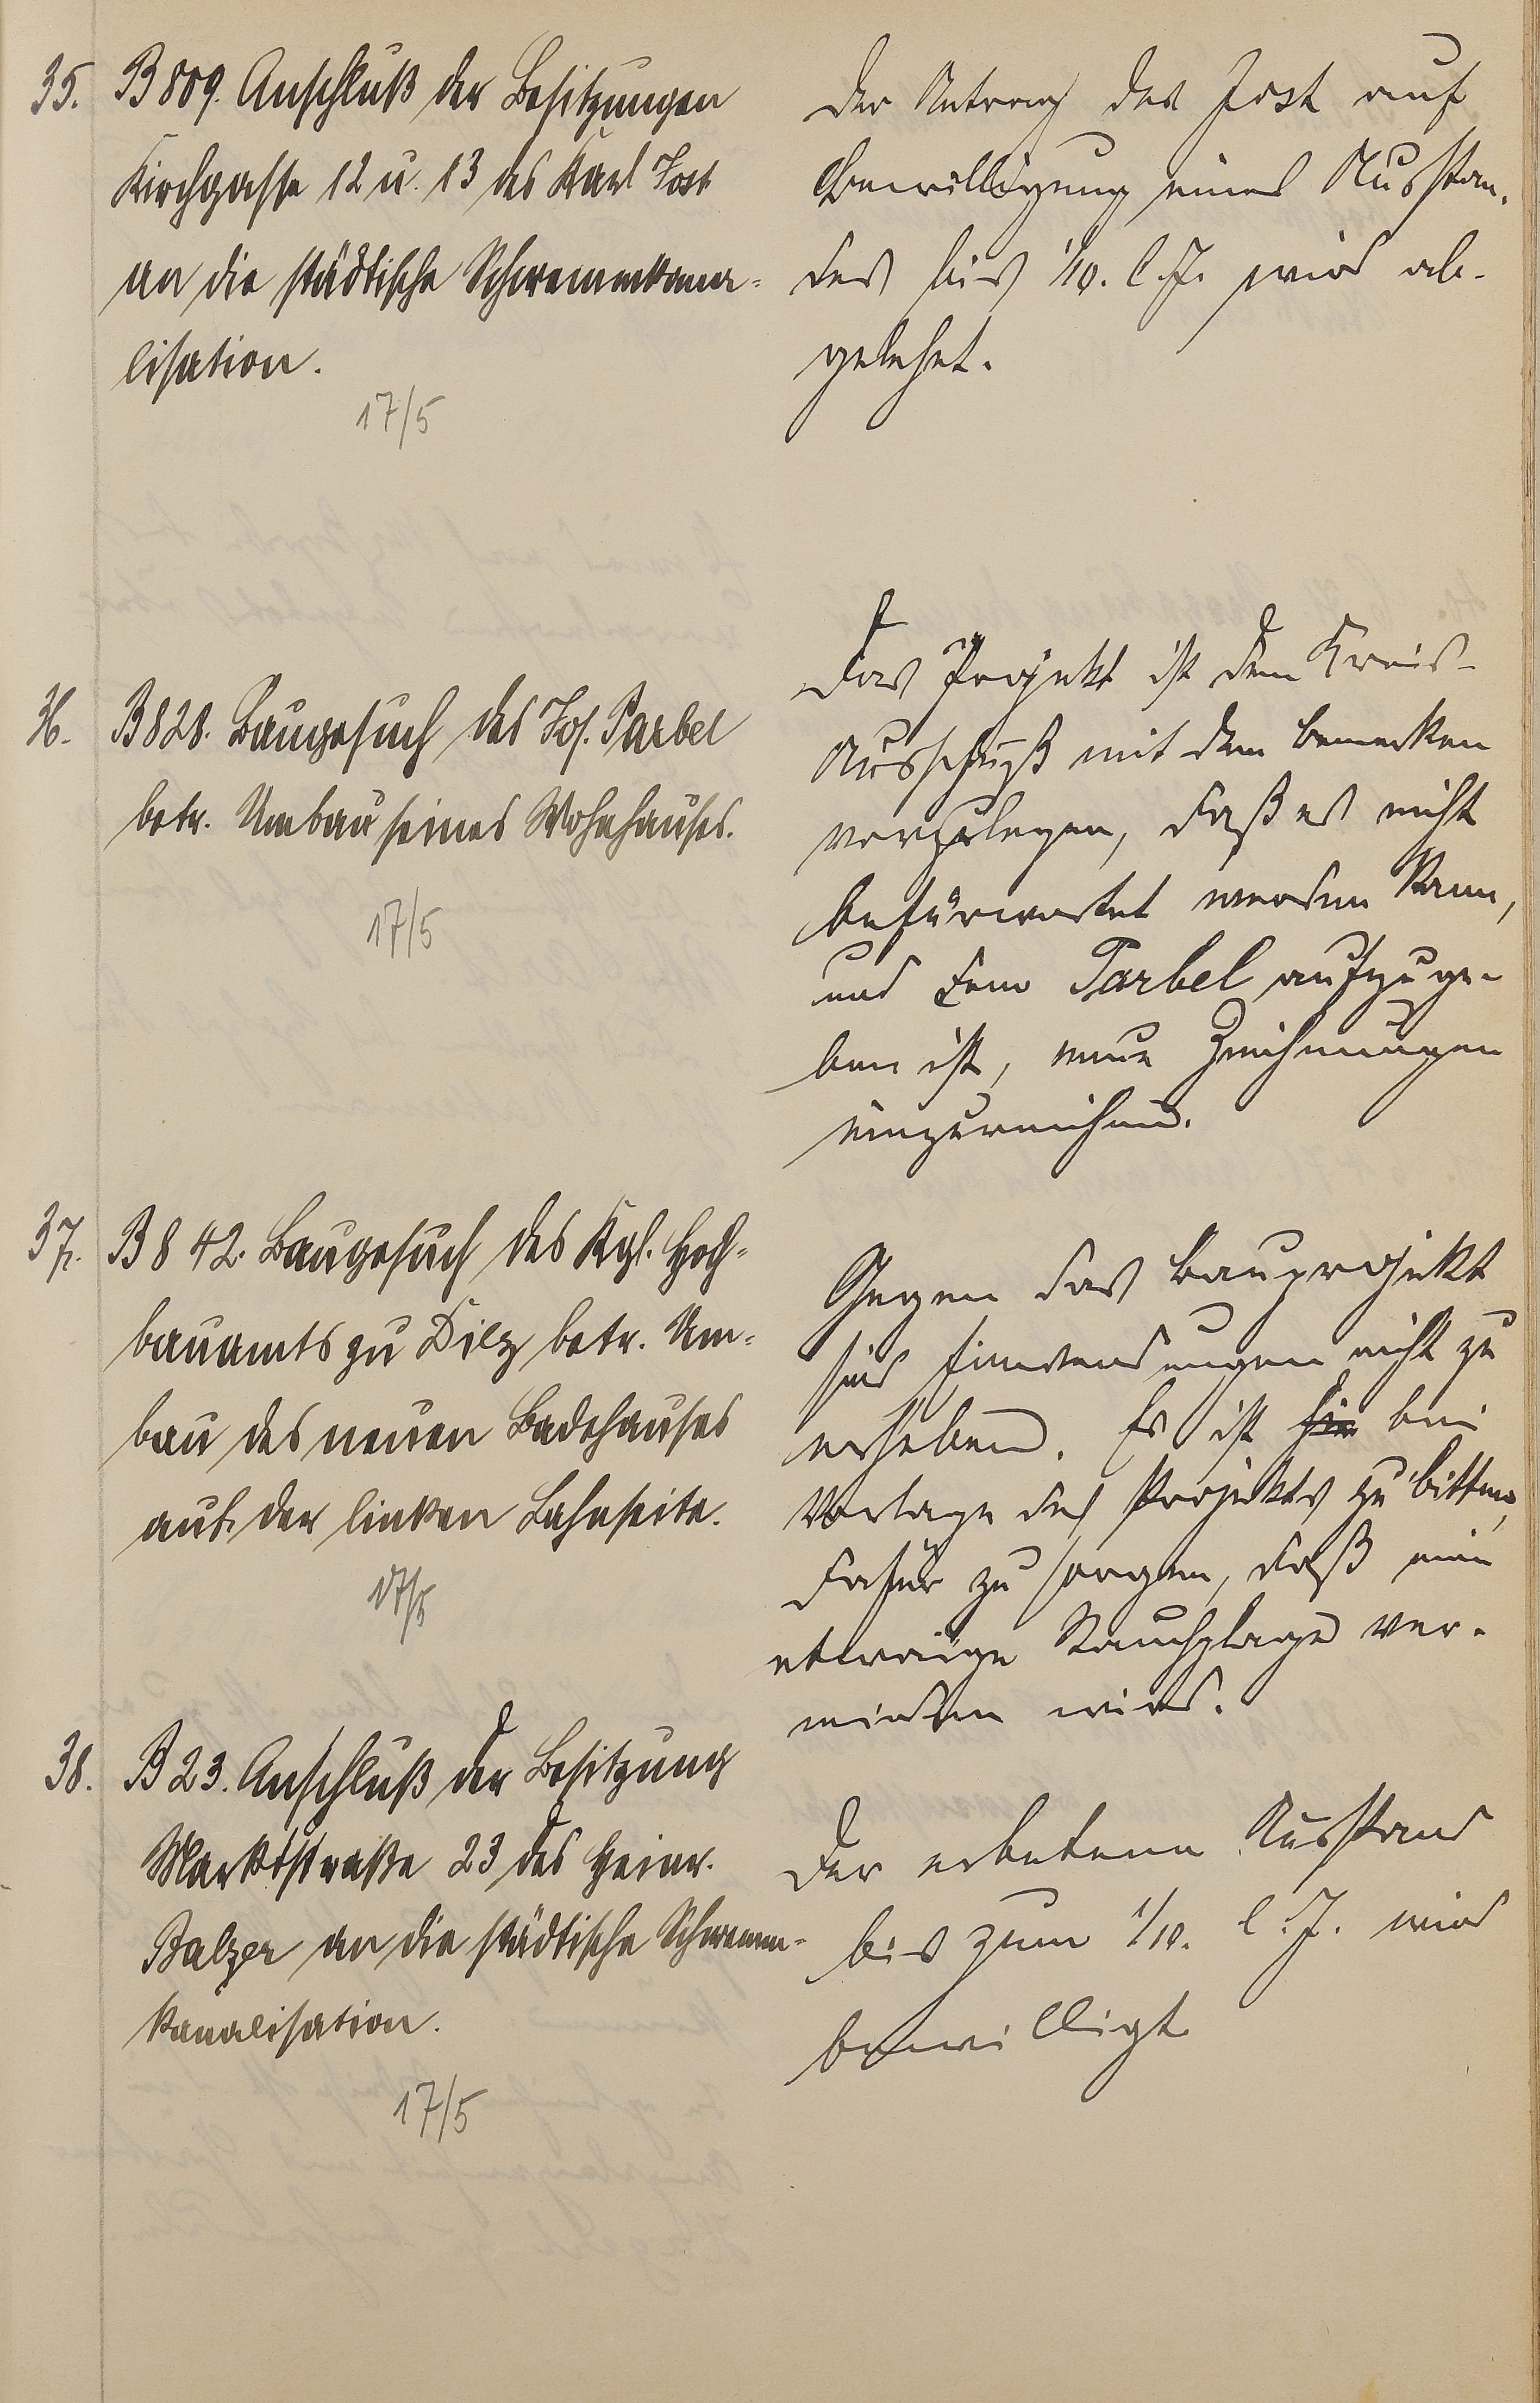 35. B 809. Anschluß der Besitzungen
Kirchgasse 12 u. 13 des Karl Jost
an die städtische Schwemmkana-
lisation.
17/5
Der Antrag des Jost auf
Bewilligung eines Ausstan-
des bis 1/10. l. J. wird ab-
gelehnt.
36. B 828. Baugesuch des Jos. Parbel
betr. Umbau seines Wohnhauses.
17/5
Das Projekt ist dem Kreis-
Ausschuß mit dem Bemerken
vorzulegen, daß es nicht
befürwortet werden kann,
und dem Parbel aufzuge-
ben ist, neue Zeichnungen
einzureichen.
37. B 842. Baugesuch des Kgl. Hoch-
bauamts zu Diez betr. Um-
bau des neuen Badehauses
auf der linken Lahnseite.
17/5
Gegen das Bauprojekt
sind Einwendungen nicht zu
erheben. Es ist bei
Vorlage des Projekts zu bitten,
dafür zu sorgen, daß eine
etwaige Rauchplage ver-
mieden wird.
38. B 23. Anschluß der Besitzung
Marktstraße 23 des Heinr.
Balzer an die städtische Schwemm-
kanalisation.
17/5
Der erbetene Ausstand
bis zum 1/10. l. J. wird
bewilligt